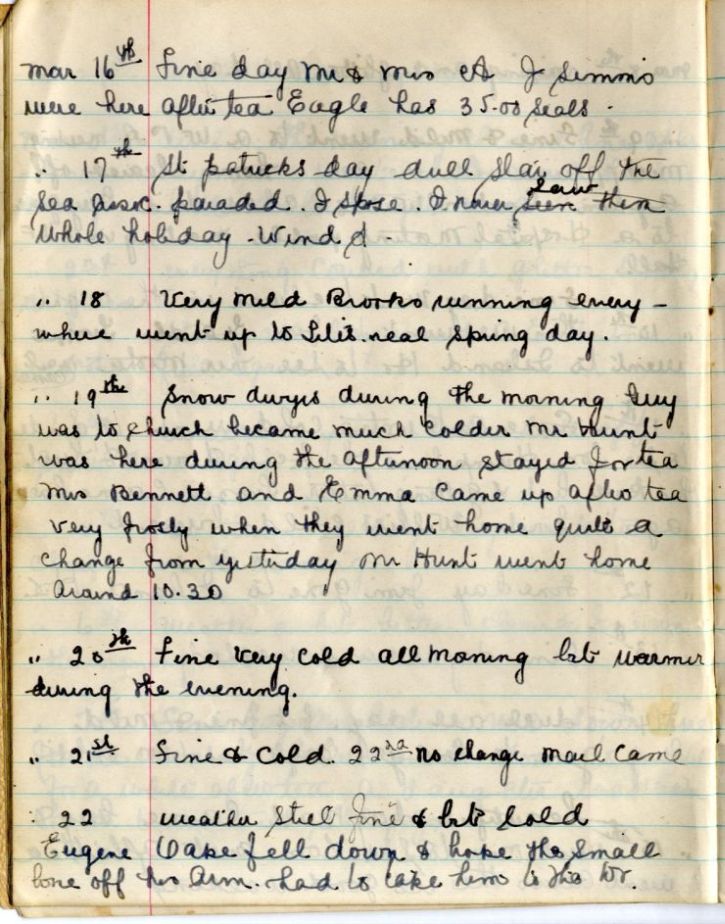 Mar 16th Fine day Mr & Mrs A J Simms
were here after tea Eagle has 35.00 seals.
" 17th St patricks day dull Star off the
Sea Assoc. paraded. I spose. I never saw them
Whole holiday. Wind
" 18 Very mild Brooks running every-
where went up to real Spring day.
" 19th Snow dwys during the morning Guy
was to church became much colder Mr Hunt
was here during the afternoon stayed for tea
Mrs Bennett and Emma came up after tea
very frosty when they went home quite a
change from yesterday Mr Hunt went home
around 10.30
" 20th Fine very cold all morning bit warmer
during the evening.
" 21st Fine & cold. 22nd no change mail came
" 22 weather still fine & bit cold
Eugene fell down & broke the small
bone off his arm. had to take him to the Dr.